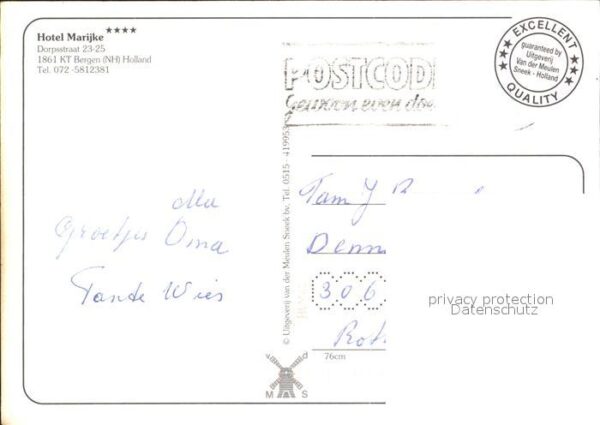 Hotel Marijke ****
Dorpsstraat 23-25
1861 KT Bergen (NH) Holland
Tel. 072 -5812381
POSTCOD
Gewoon even do
EXCELLENT
guaranteed by
Uitgeverij
Van der Meulen
Sneek - Holland
QUALITY
© Uitgeverij van der Meulen Sneek bv. Tel. 0515 - 419053
Groetjes Oma
Tante Wies
Fam J
Denn
306
Rot
privacy protection
Datenschutz
76cm
v d
M S